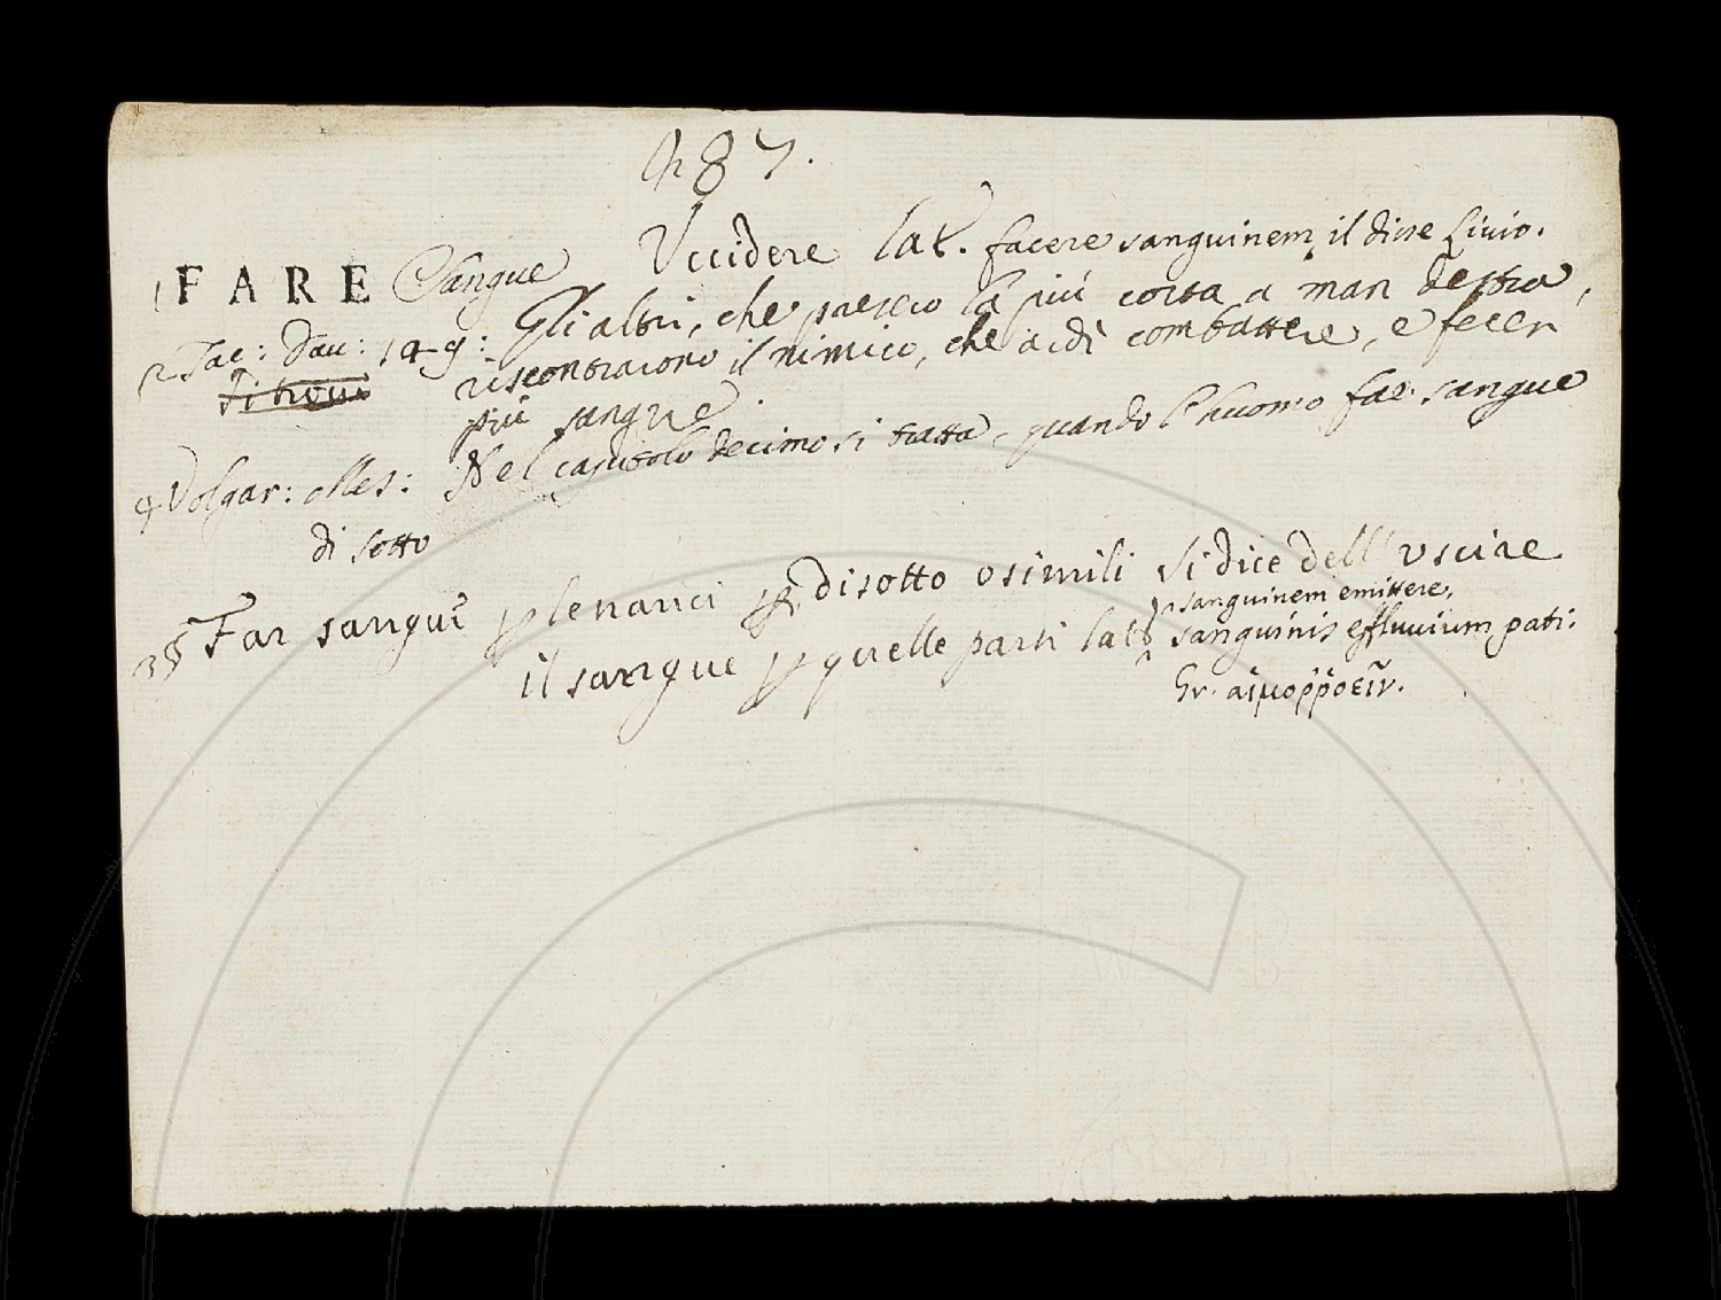 487.
1 FARE Sangue Vccidere lat. facere sanguinem, il disse Liuio.
2 Tac: Dau: 149: Gli altri, che presero la più corta a man destra,
riscontrarono il nimico, che ardì combattere, e fecer
più sangue.
4 Volgar: Mes: Nel capitolo decimo si tratta, quando l'huomo fae sangue
di sotto
3 § Far sangue p le narici p disotto o simili si dice dell'uscire
sanguinem emittere,
il sangue p quelle parti lat. sanguinis effluuium pati.
Gr. αἱμοῤῥοεῖν.